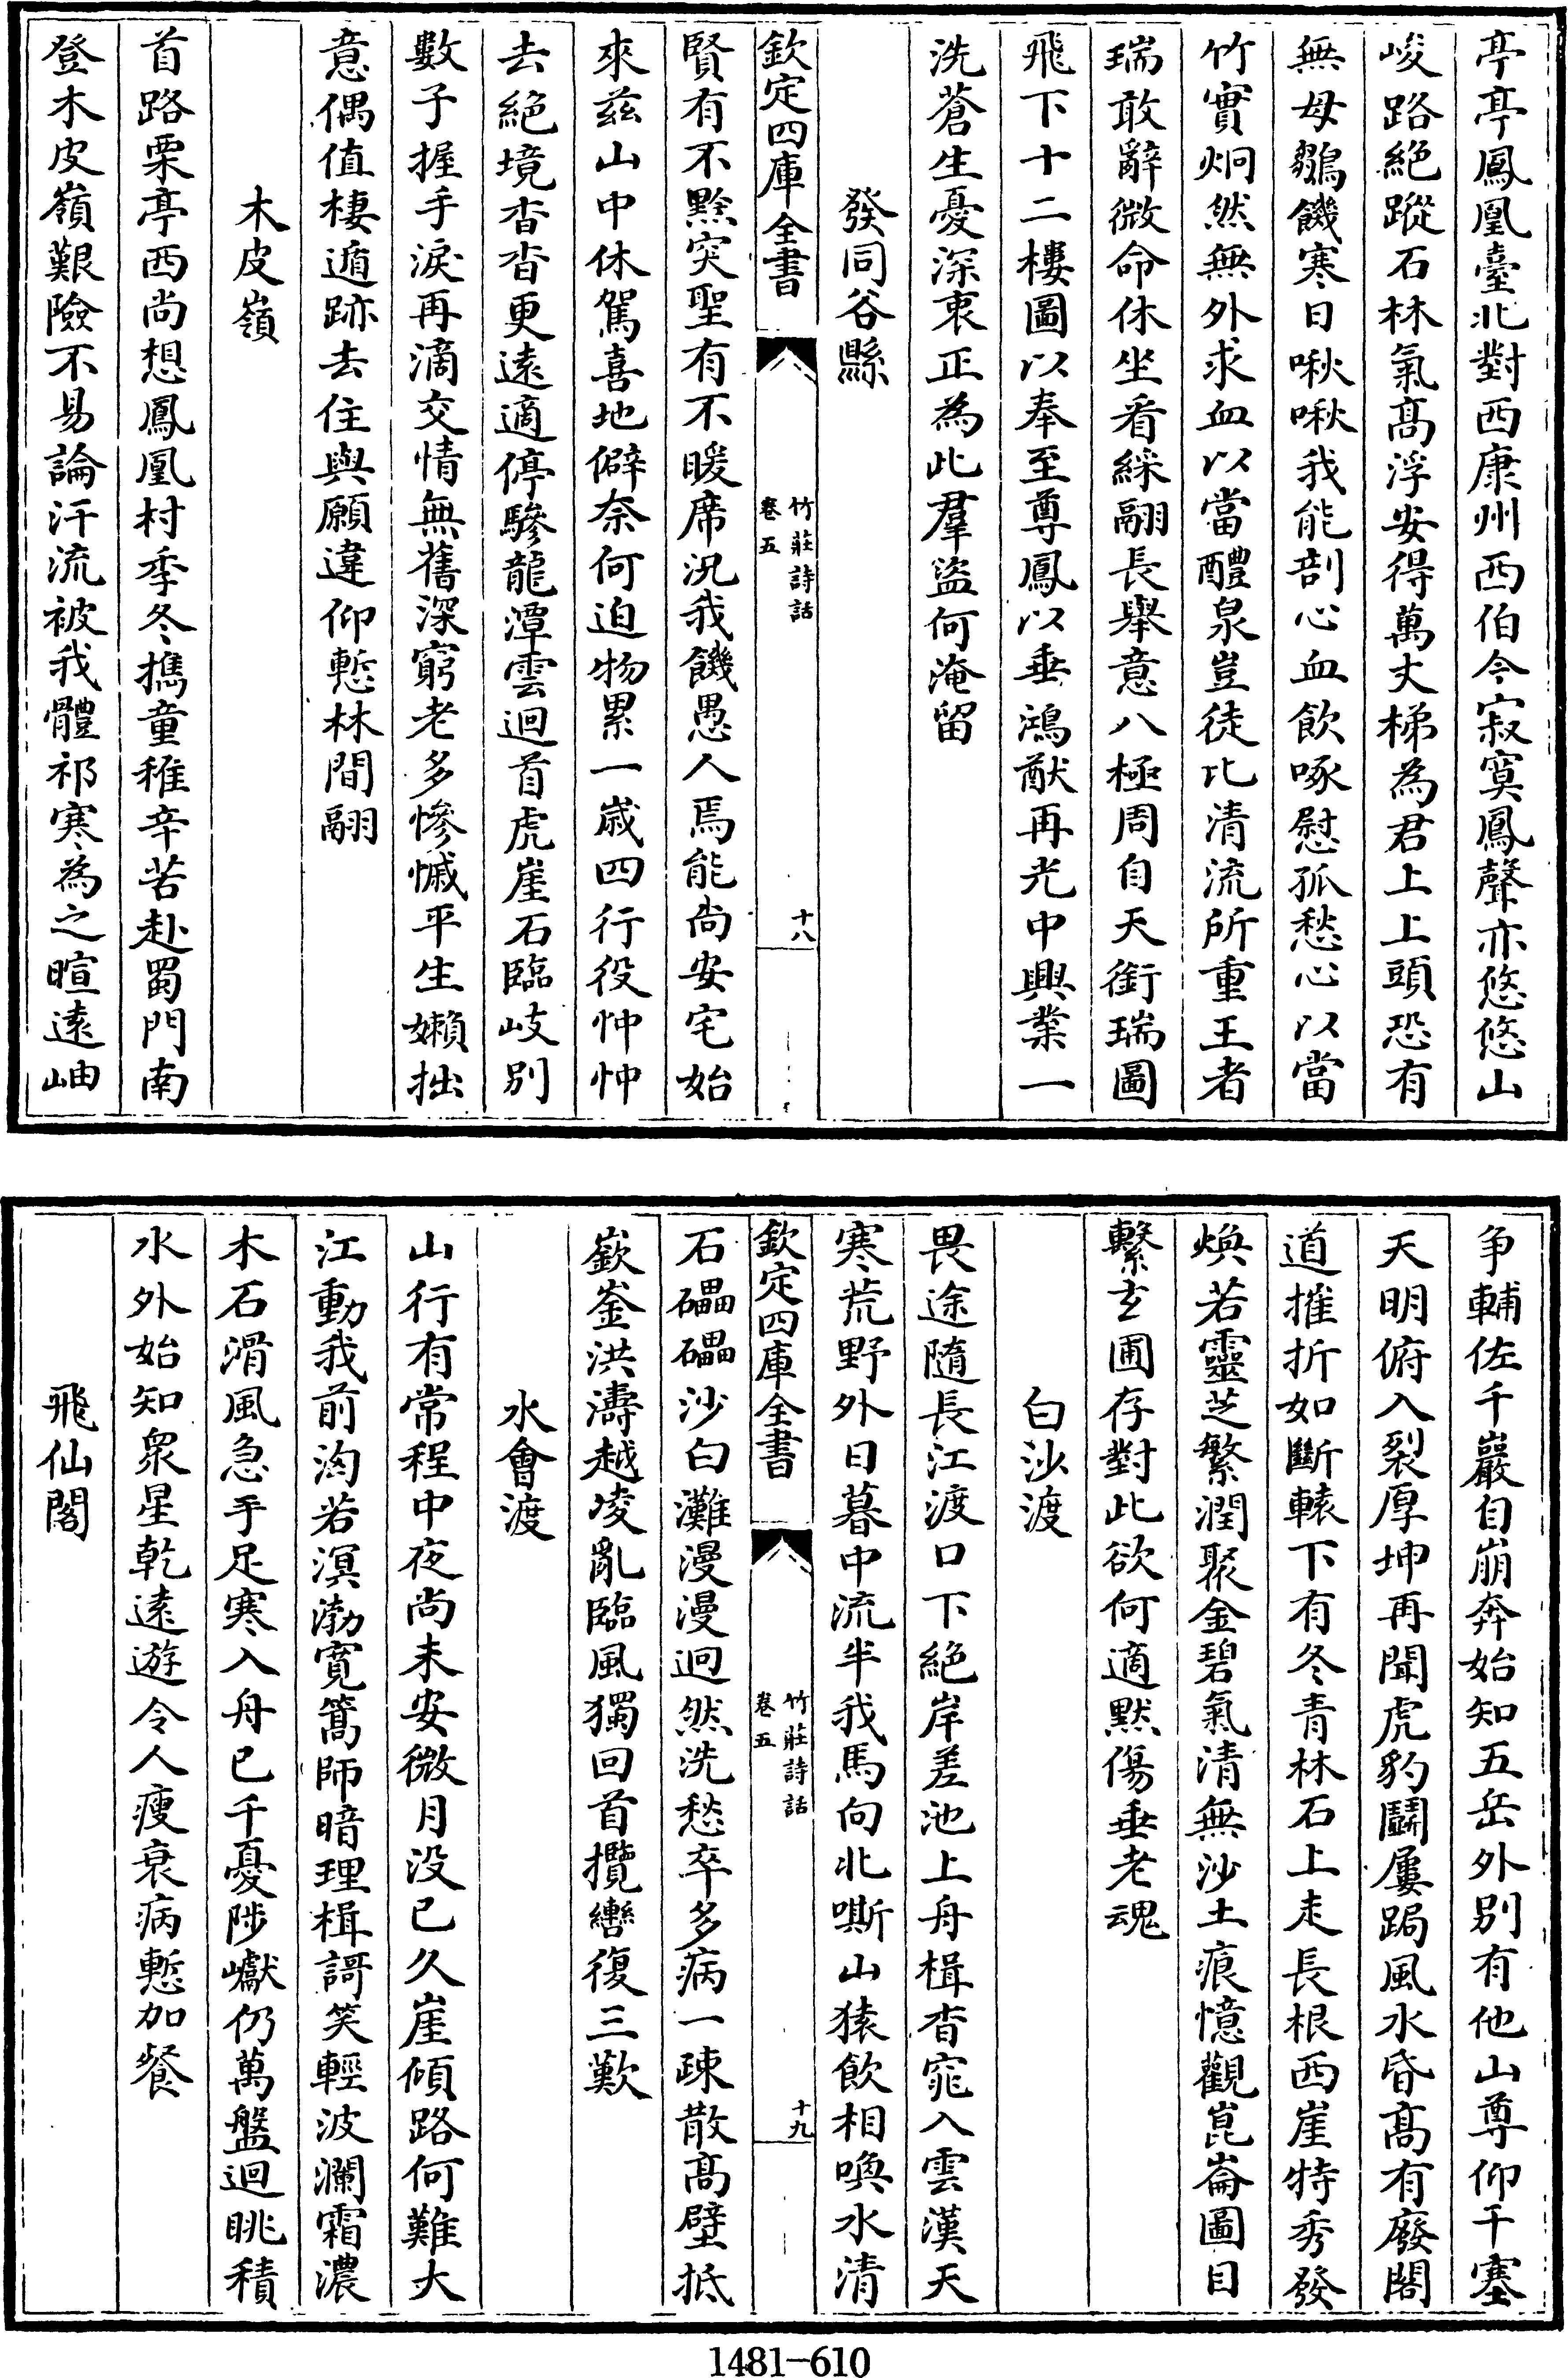 亭亭鳳凰臺北對西康州西伯今寂寞鳳聲亦悠悠山
峻路絕蹤石林氣髙浮安得萬丈梯為君上上頭恐有
無母鶵饑寒日啾啾我能剖心血飲啄慰孤愁心以當
竹實炯然無外求血以當醴泉豈徒比清流所重王者
瑞敢辭微命休坐看綵翮長舉意八極周自天銜瑞圖
飛下十二樓圖以奉至尊鳳以垂鴻猷再光中興業一
洗蒼生憂深衷正為此羣盜何淹留
發同谷縣
欽定四庫全書
竹莊詩話
卷五
十八
賢有不黔突聖有不暖席況我饑愚人焉能尚安宅始
來茲山中休駕喜地僻奈何迫物累一歲四行役忡忡
去絕境杳杳更遠適停驂龍潭雲迴首虎崖石臨岐別
數子握手淚再滴交情無舊深窮老多慘慽平生嬾拙
意偶值棲遁跡去住與願違仰慙林間翮
木皮嶺
首路栗亭西尚想鳳凰村季冬攜童稚辛苦赴蜀門南
登木皮嶺艱險不易論汗流被我體祁寒為之暄遠岫
争輔佐千巖自崩奔始知五岳外別有他山尊仰干塞
天明俯入裂厚坤再聞虎豹鬪屢跼風水昏髙有廢閣
道摧折如斷轅下有冬青林石上走長根西崖特秀發
煥若靈芝繁潤聚金碧氣清無沙土痕憶觀崑崙圖目
繫玄圃存對此欲何適默傷垂老魂
白沙渡
畏途隨長江渡口下絕岸差池上舟楫杳窕入雲漢天
寒荒野外日暮中流半我馬向北嘶山猿飲相喚水清
欽定四庫全書
竹莊詩話
卷五
十九
石礧礧沙白灘漫漫迥然洗愁卒多病一疎散髙壁抵
嶔崟洪濤越凌亂臨風獨回首攬轡復三歎
水會渡
山行有常程中夜尚未安微月没已久崖傾路何難大
江動我前洶若溟渤寬篙師暗理楫謌笑輕波瀾霜濃
木石滑風急手足寒入舟已千憂陟巘仍萬盤迴眺積
水外始知衆星乾遠遊令人瘦衰病慙加餐
飛仙閣
1481-610